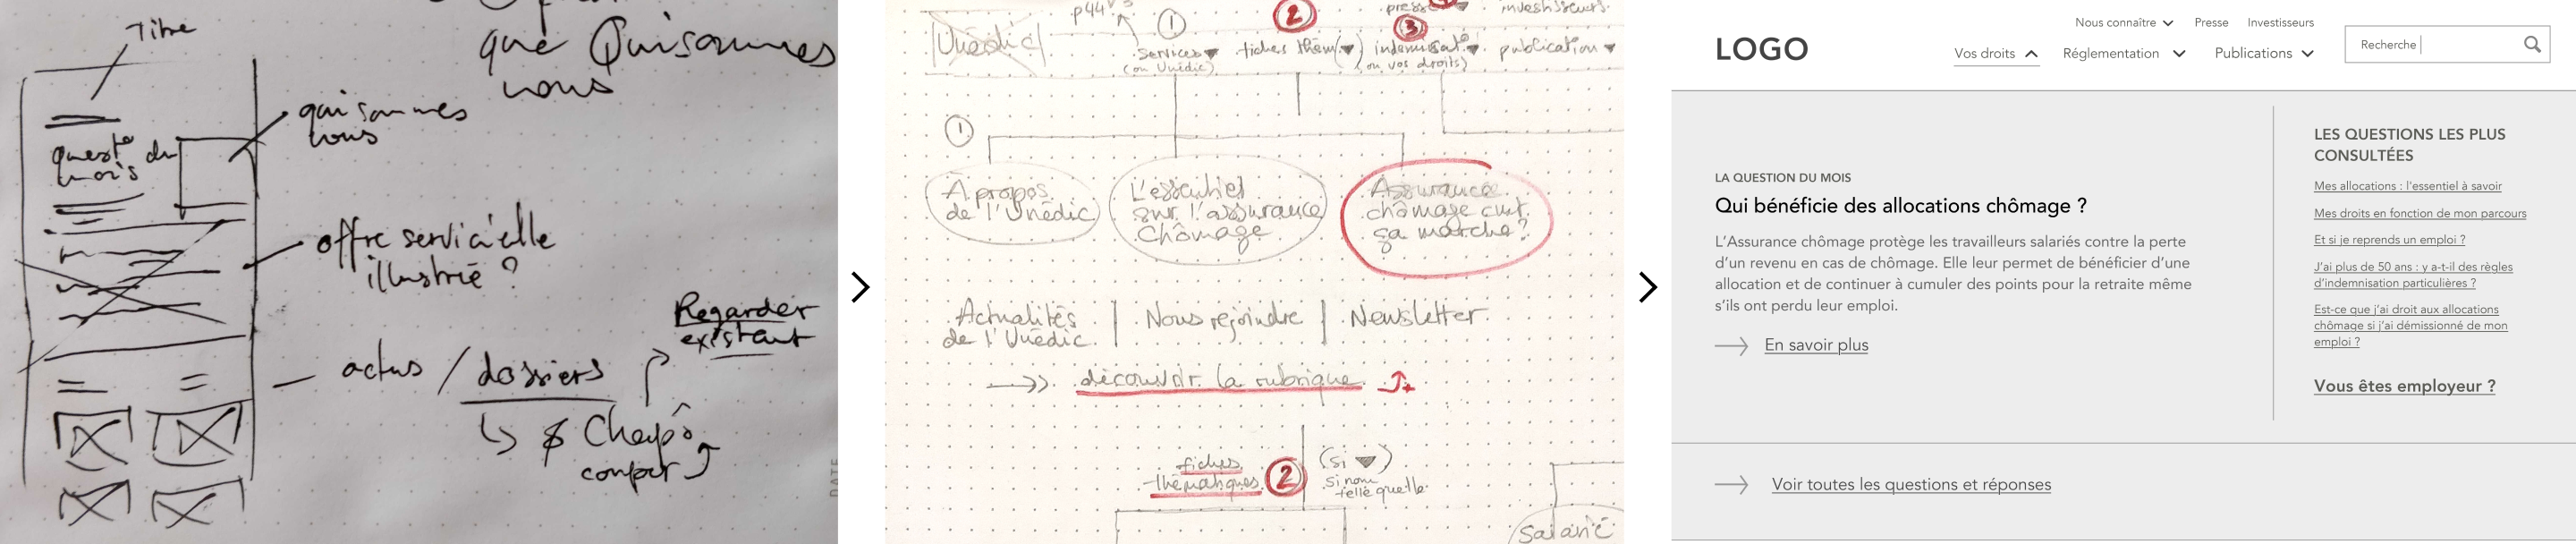 Titre
que Quisommes
nous
qui sommes
nous
quest° du
mois
offre servicielle
illustrée ?
Regarder
existant
actus / dossiers
couper
DATE
p44
Unédic
①
2
3
investisseurs
services
(ou Unédic)
fiches thém(
indemnisat°
ou vos droits)
publication
①
À propos
de l'Unédic
L'essentiel
sur l'assurance
chômage
Assurance
chômage cmt
ça marche?
Actualités
de l'Unédic
Nous rejoindre
Newsletter
découvrir la rubrique
fiches
thématiques
2
(si
si non
telle quelle
Salarié
LOGO
Nous connaître
Presse
Investisseurs
Vos droits
Réglementation
Publications
Recherche
LA QUESTION DU MOIS
Qui bénéficie des allocations chômage ?
L'Assurance chômage protège les travailleurs salariés contre la perte
d'un revenu en cas de chômage. Elle leur permet de bénéficier d'une
allocation et de continuer à cumuler des points pour la retraite même
s'ils ont perdu leur emploi.
En savoir plus
LES QUESTIONS LES PLUS
CONSULTÉES
Mes allocations : l'essentiel à savoir
Mes droits en fonction de mon parcours
Et si je reprends un emploi ?
J'ai plus de 50 ans : y a-t-il des règles
d'indemnisation particulières ?
Est-ce que j'ai droit aux allocations
chômage si j'ai démissionné de mon
emploi ?
Vous êtes employeur ?
Voir toutes les questions et réponses